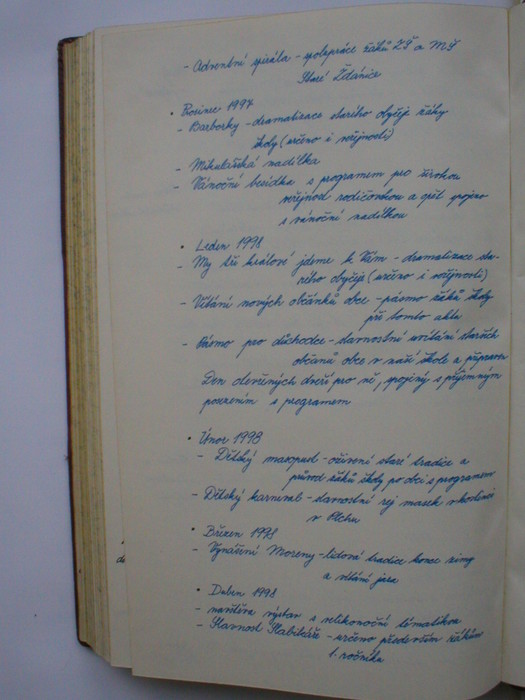 - Adventní spirála - spolupráce žáků ZŠ a MŠ
Staré Ždánice
• Prosinec 1997
- Barborky - dramatizace starého obyčeje žáky
školy (určeno i veřejnosti)
- Mikulášská nadílka
- Vánoční besídka s programem pro širokou
veřejnost rodičovskou a opět spojeno
s vánoční nadílkou
• Leden 1998
- My tři králové jdeme k Vám - dramatizace sta-
rého obyčeje (určeno i veřejnosti)
- Vítání nových občánků obce - pásmo žáků školy
při tomto aktu
- Pásmo pro důchodce - slavnostní uvítání starších
občanů obce v naší škole a příprava
Den otevřených dveří pro ně, spojený s příjemným
posezením s programem
• Únor 1998
- Dětský masopust - oživení staré tradice a
průvod žáků školy po obci s programem
- Dětský karneval - slavnostní rej masek v hostinci
v Plchu
• Březen 1998
- Vynášení Moreny - lidová tradice konce zimy
a vítání jara
• Duben 1998
- návštěva výstav s velikonoční tématikou
- Slavnost Slabikáře - určeno především žákům
1. ročníku